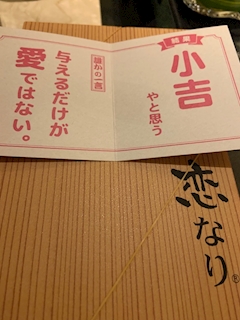 開運
小吉
やと思う
誰かの一言
与えるだけが
愛ではない。
恋なり®